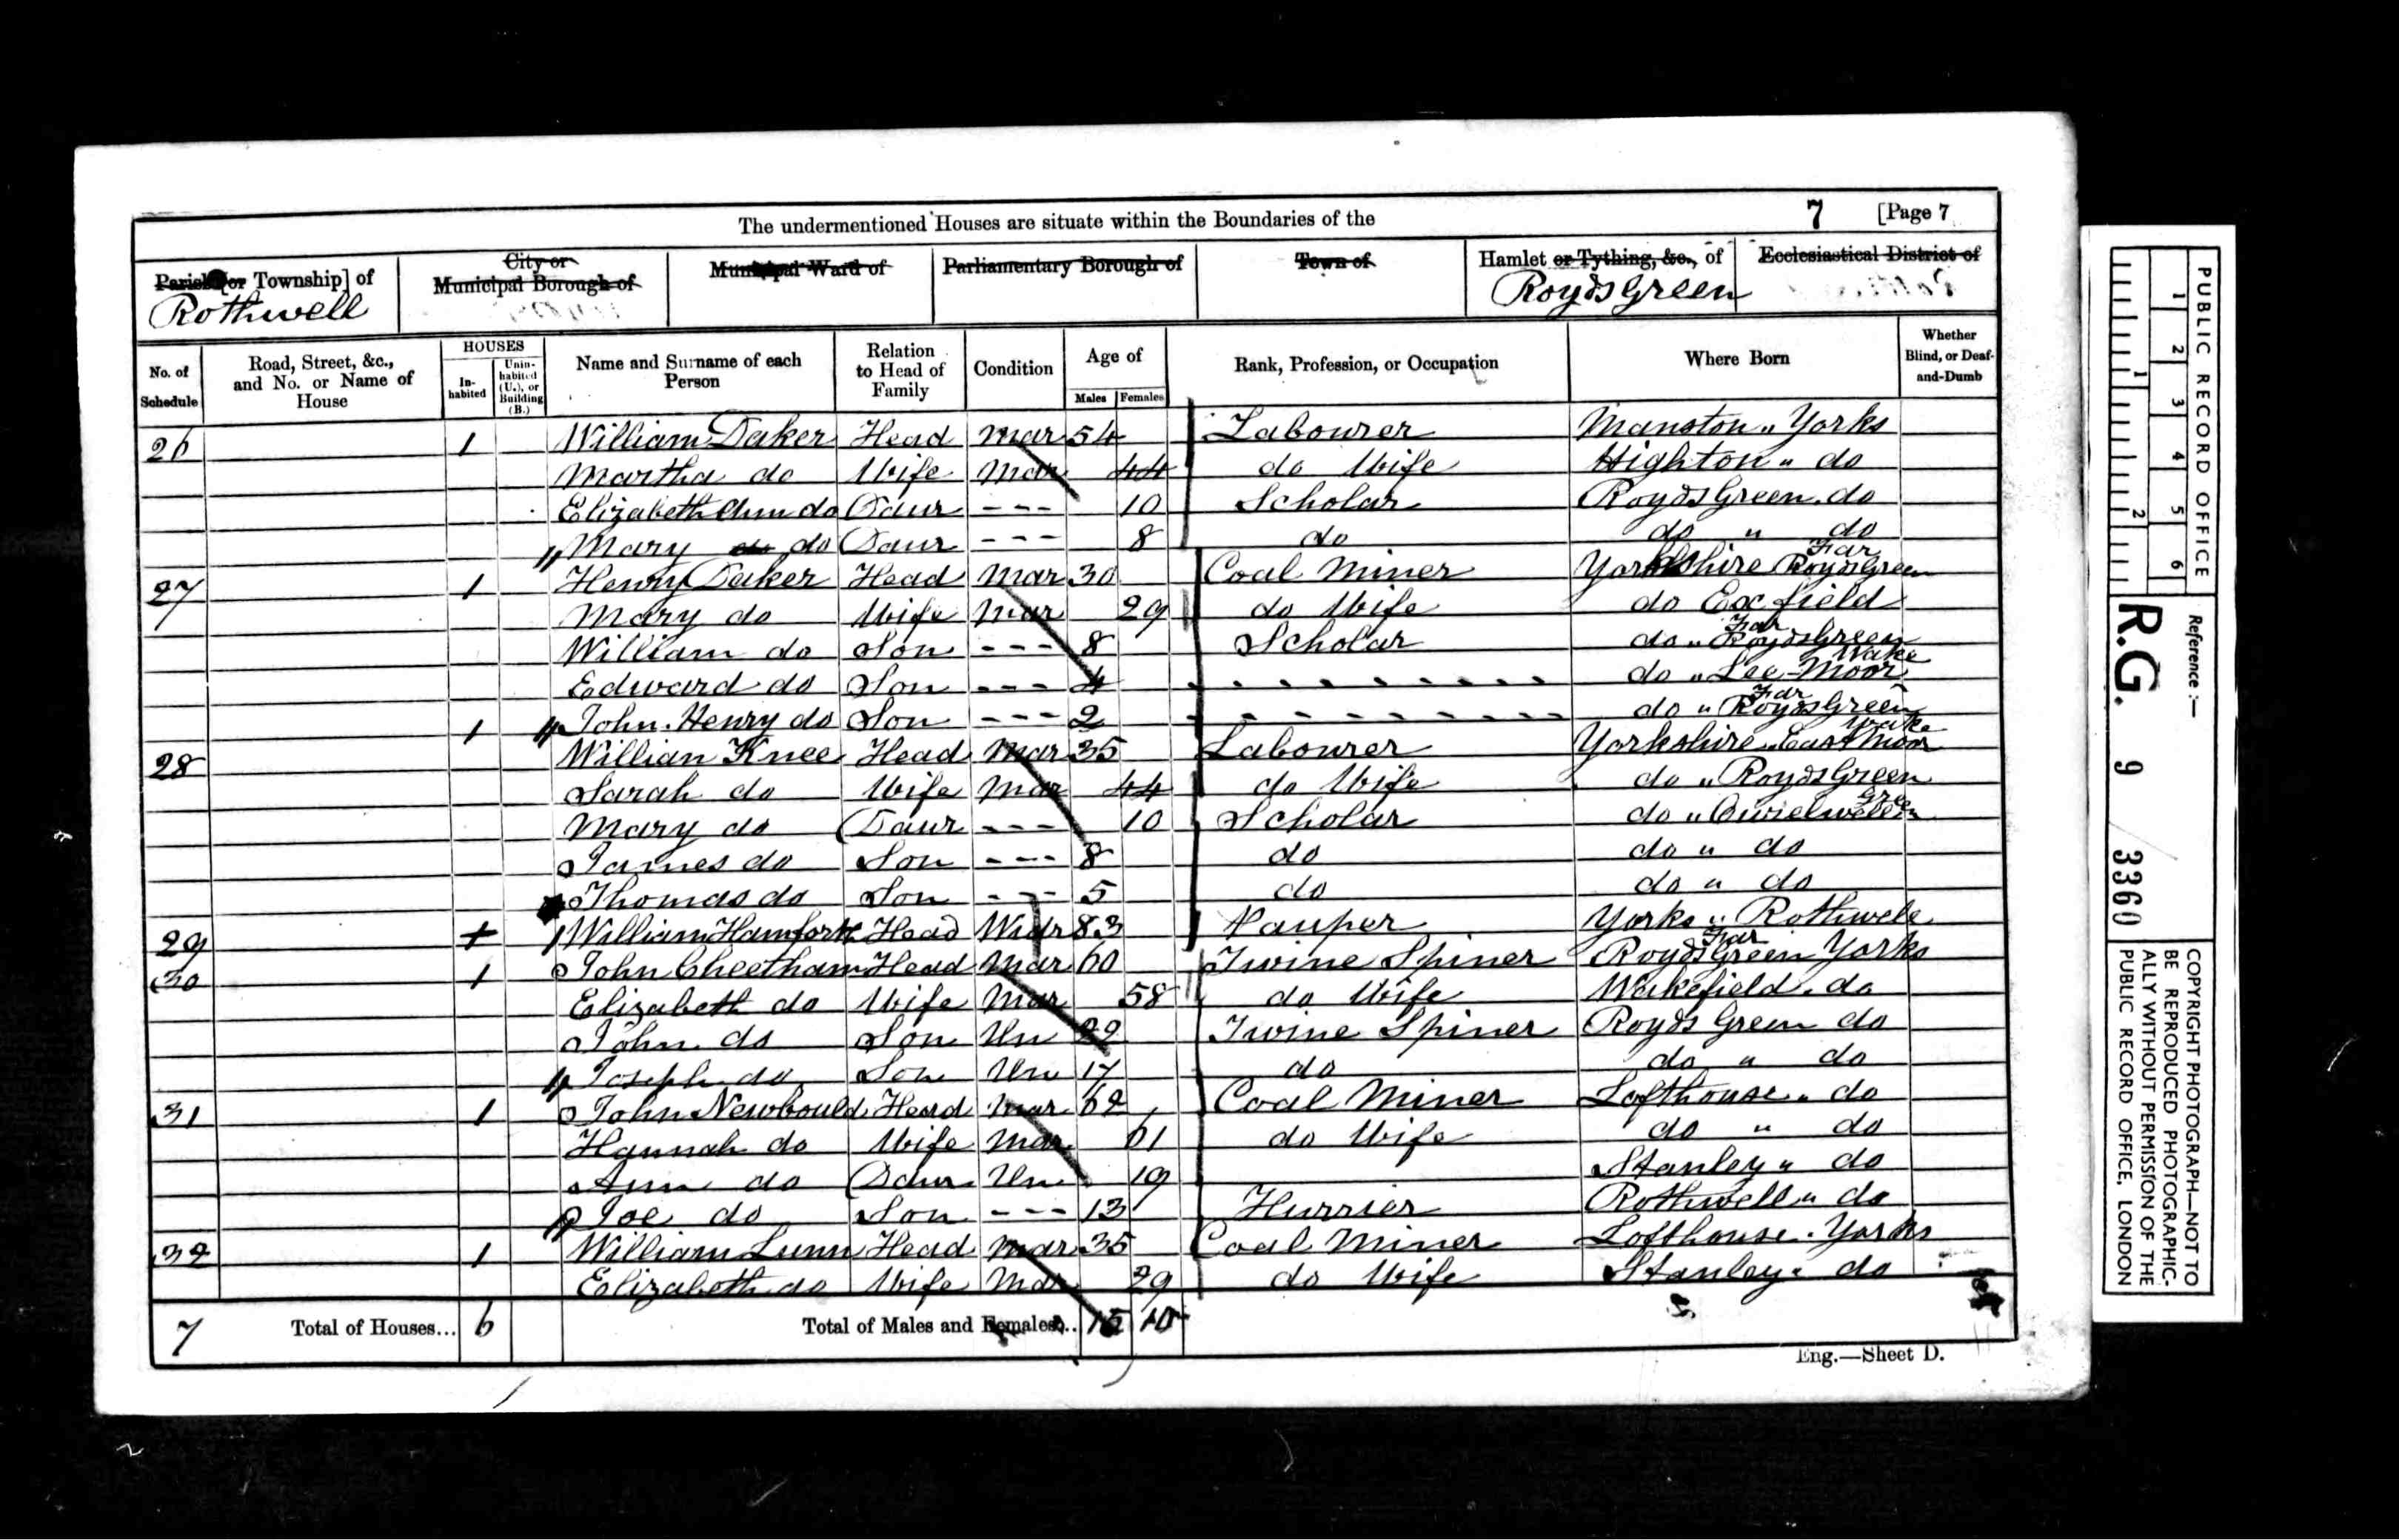 The undermentioned Houses are situate within the Boundaries of the 7 [Page 7
Parish [or Township] of City or Municipal Borough of Municipal Ward of Parliamentary Borough of Town of Hamlet or Tything, &c., of Ecclesiastical District of
Rothwell Royds Green
No. of Schedule Road, Street, &c., and No. or Name of House HOUSES Inhabited Uninhabited (U.), or Building (B.) Name and Surname of each Person Relation to Head of Family Condition Age of Males Females Rank, Profession, or Occupation Where Born Whether Blind, or Deaf-and-Dumb
26 1 William Daker Head Mar 54 Labourer Manston " Yorks
Martha do Wife Mar 44 do Wife Highton " do
Elizabeth Ann do Daur --- 10 Scholar Royds Green. do
Mary do do Daur --- 8 do do " do
27 1 Henry Daker Head Mar 30 Coal Miner Yorkshire Far Royds Green
Mary do Wife Mar 29 do Wife do field
William do Son --- 8 Scholar do " Far Royds Green
Edward do Son --- 4 do " Lee-Moor Wake
John. Henry do Son --- 2 do " Far Royds Green
28 1 William Knee Head Mar 35 Labourer Yorkshire. East Moor Wake
Sarah do Wife Mar 44 do Wife do " Royds Green
Mary do Daur --- 10 Scholar do " Green
James do Son --- 8 do do " do
Thomas do Son --- 5 do do " do
29 William Head Widr 83 Pauper Yorks " Rothwell
30 1 John Cheetham Head Mar 60 Twine Spiner Far Royds Green Yorks
Elizabeth do Wife Mar 58 do Wife Wakefield. do
John do Son Un 22 Twine Spiner Royds Green do
Joseph do Son Un 17 do do " do
31 1 John Newbould Head Mar 62 Coal Miner Lofthouse " do
Hannah do Wife Mar 61 do Wife do " do
Ann do Daur Un 19 Stanley " do
Joe do Son --- 13 Hurrier Rothwell " do
32 1 William Lunn Head Mar 35 Coal Miner Lofthouse. Yorks
Elizabeth do Wife Mar 29 do Wife Stanley " do
7 Total of Houses... 6 Total of Males and Females... 15 10
Eng.—Sheet D.
PUBLIC RECORD OFFICE
1 2 3 4 5 6
1 2
Reference :—
R.G. 9 3360
COPYRIGHT PHOTOGRAPH—NOT TO
BE REPRODUCED PHOTOGRAPHIC-
ALLY WITHOUT PERMISSION OF THE
PUBLIC RECORD OFFICE, LONDON